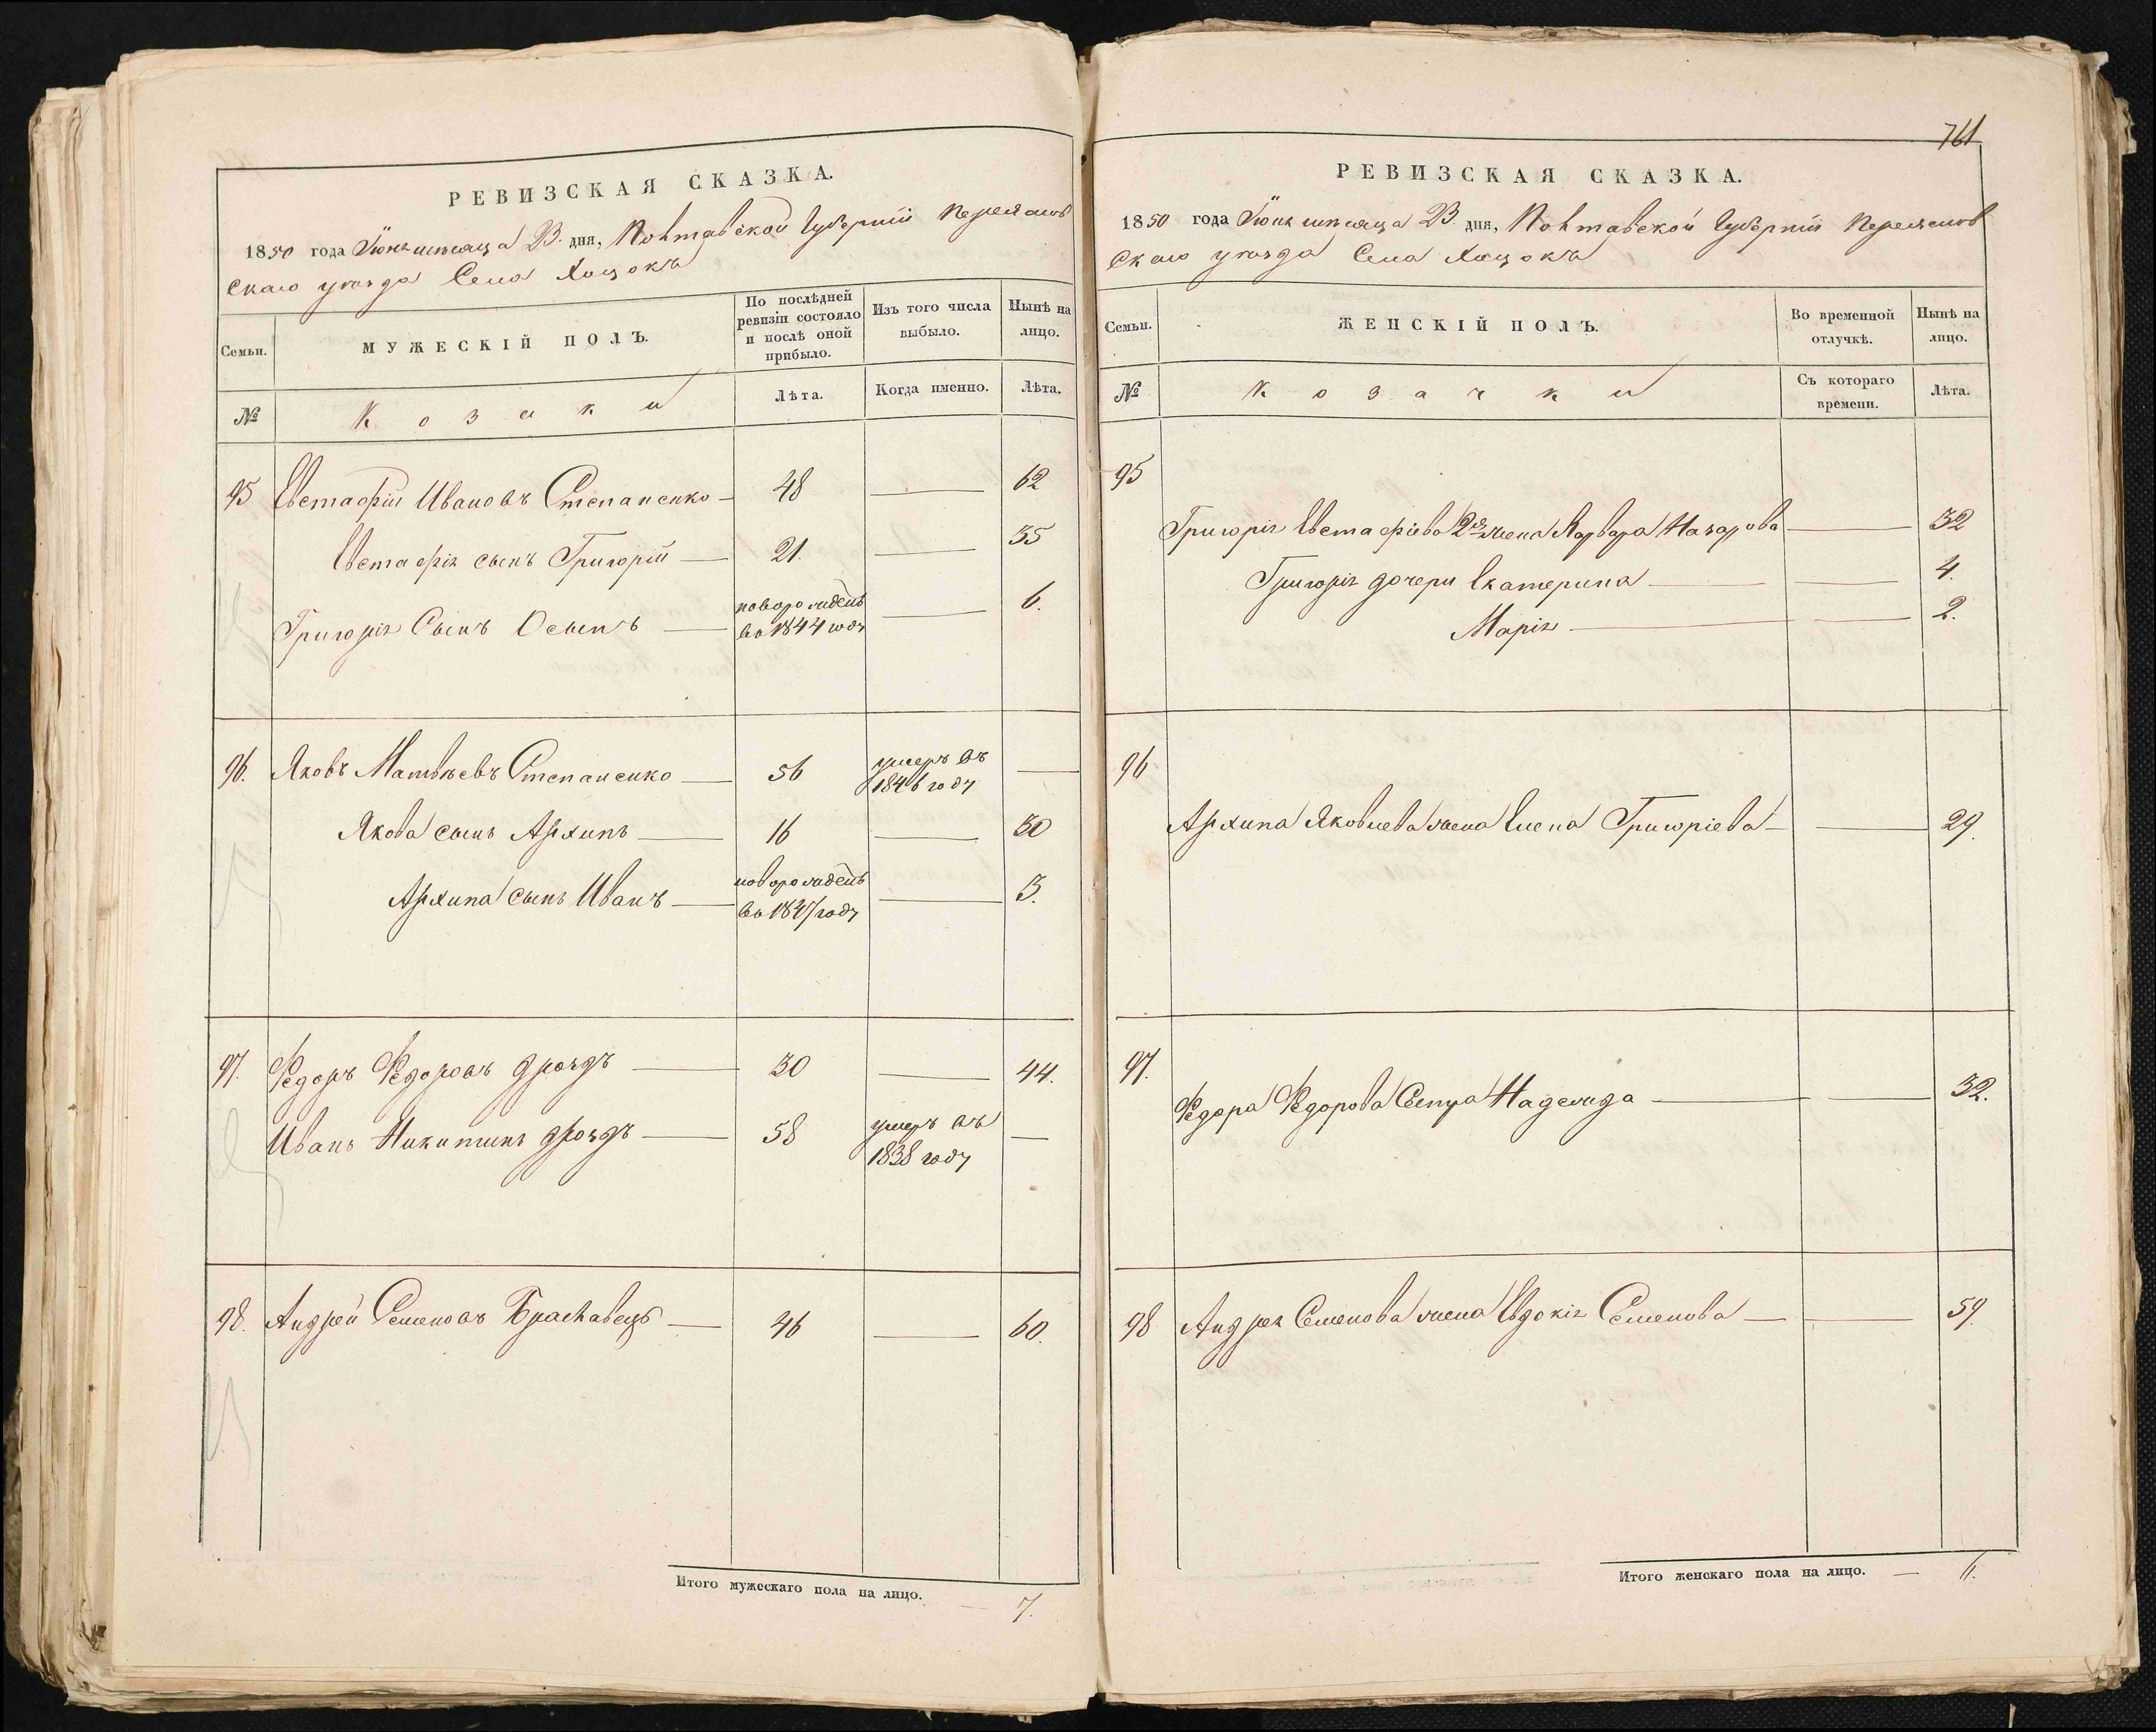 РЕВИЗСКАЯ СКАЗКА.
1850 года Іюня мѣсяца 23 дня, Полтавской Губерніи Переяслов
скаго уѣзда Села Хоцокъ
Семьи.
МУЖЕСКІЙ ПОЛЪ.
По послѣдней ревизіи состояло и послѣ оной прибыло.
Изъ того числа выбыло.
Нынѣ на лицо.
№
Козаки
Лѣта.
Когда именно.
Лѣта.
95 Евстафій Ивановъ Степаненко 48 — 62
Евстафія сынъ Григорій — 21. — 35
Григорія Сынъ Осипъ — новорожденъ въ 1844 году — 6.
96. Яковъ Матвѣевъ Степаненко — 56 умеръ въ 1846 году —
Якова сынъ Архипъ — 16 — 30
Архипа сынъ Иванъ — новорожденъ въ 1847 году — 3.
97. Федоръ Федоровъ Дроздъ — 30 — 44.
Иванъ Никитинъ Дроздъ — 58 умеръ въ 1838 году —
98. Андрей Семеновъ — 46 — 60.
Итого мужескаго пола на лицо. — 7.
761
РЕВИЗСКАЯ СКАЗКА.
1850 года Іюня мѣсяца 23 дня, Полтавской Губерніи Переяслов
скаго уѣзда Села Хоцокъ
Семьи.
ЖЕНСКІЙ ПОЛЪ.
Во временной отлучкѣ.
Нынѣ на лицо.
№
Козачки
Съ котораго времени.
Лѣта.
95
Григорія Евстафіева 2я жена Варвара Назарова — 32
Григорія дочери Екатерина — — 4.
Марія — — 2.
96
Архипа Яковлева жена Елена Григоріева — — 29.
97.
Федора Федорова Сестра Надежда — — 32.
98 Андрея Семенова жена Евдокія Семенова — — 59.
Итого женскаго пола на лицо. — 6.